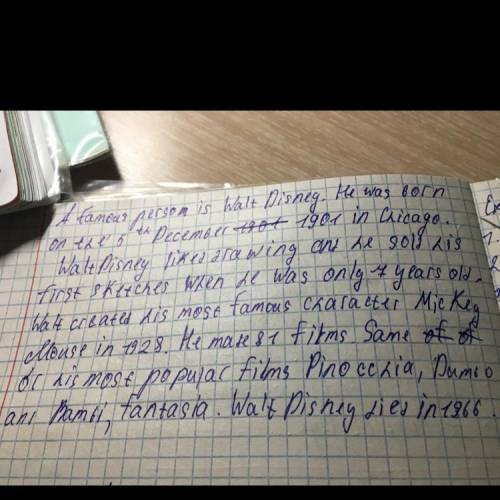 A famous person is Walt Disney. He was born
on the 5th December 1901 1901 in Chicago.
Walt Disney likes drawing and he sold his
first sketches when he was only 7 years old.
Walt created his most famous character Mickey
Mouse in 1928. He made 81 films. Same of of
of his most popular films Pinocchia, Dumbo
and Bambi, fantasia. Walt Disney dies in 1966
Ex
1
2